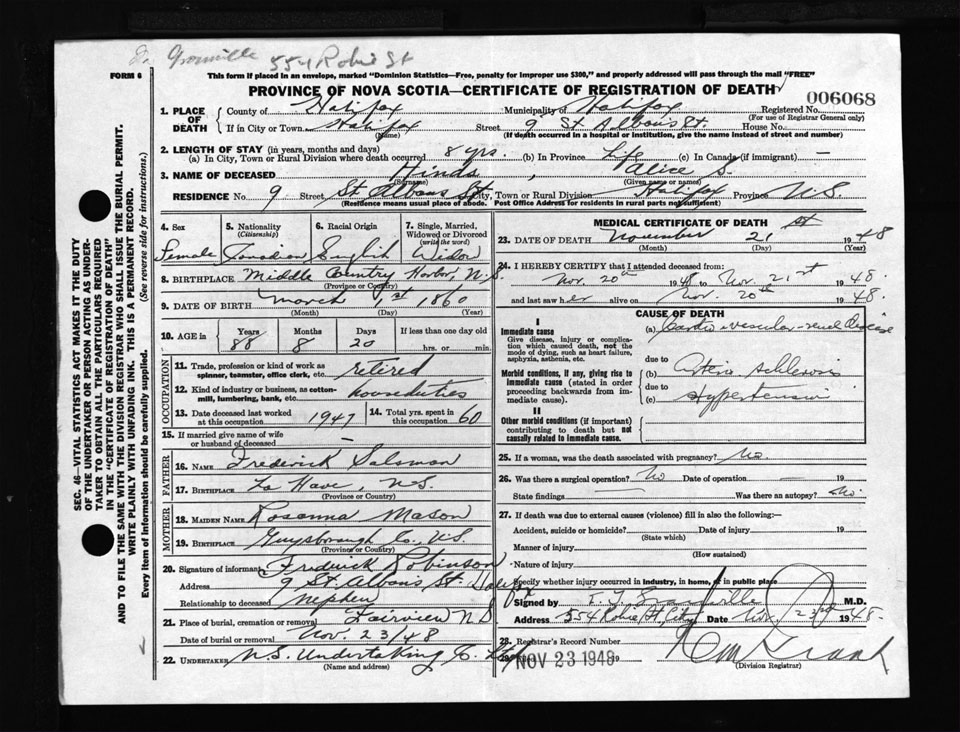 Dr Granville 554 Robie St
FORM 6
This form if placed in an envelope, marked "Dominion Statistics—Free, penalty for improper use $300," and properly addressed will pass through the mail "FREE"
PROVINCE OF NOVA SCOTIA—CERTIFICATE OF REGISTRATION OF DEATH
006068
SEC. 46—VITAL STATISTICS ACT MAKES IT THE DUTY
OF THE UNDERTAKER OR PERSON ACTING AS UNDER-
TAKER TO OBTAIN ALL THE PARTICULARS REQUIRED
IN THE "CERTIFICATE OF REGISTRATION OF DEATH"
AND TO FILE THE SAME WITH THE DIVISION REGISTRAR WHO SHALL ISSUE THE BURIAL PERMIT.
WRITE PLAINLY WITH UNFADING INK. THIS IS A PERMANENT RECORD.
Every item of Information should be carefully supplied. (See reverse side for instructions.)
1. PLACE OF DEATH
County of Halifax Municipality of Halifax Registered No.
(For use of Registrar General only)
If in City or Town Halifax Street 9 St. Albans St. House No.
(Name) (If death occurred in a hospital or institution, give the name instead of street and number)
2. LENGTH OF STAY (in years, months and days)
(a) In City, Town or Rural Division where death occurred 8 yrs. (b) In Province Life (c) In Canada (if immigrant) —
3. NAME OF DECEASED Hinds, Alice S.
(Surname) (Given name or names)
RESIDENCE No. 9 Street St Albans St City, Town or Rural Division Halifax Province N.S.
(Residence means usual place of abode. Post Office Address for residents in rural parts not sufficient)
4. Sex Female
5. Nationality (Citizenship) Canadian
6. Racial Origin English
7. Single, Married, Widowed or Divorced (write the word) Widow
8. BIRTHPLACE Middle Country Harbor, N.S.
(Province or Country)
9. DATE OF BIRTH March 1st 1860
(Month) (Day) (Year)
10. AGE in Years 88 Months 8 Days 20 If less than one day old
hrs. or min.
OCCUPATION
11. Trade, profession or kind of work as spinner, teamster, office clerk, etc. retired
12. Kind of industry or business, as cotton-mill, lumbering, bank, etc. houseduties
13. Date deceased last worked at this occupation 1947
14. Total yrs. spent in this occupation 60
15. If married give name of wife or husband of deceased —
FATHER
16. NAME Frederick Salsman
17. BIRTHPLACE La Have, N.S.
(Province or Country)
MOTHER
18. MAIDEN NAME Rosanna Mason
19. BIRTHPLACE Guysborough Co., N.S.
(Province or Country)
20. Signature of informant Frederick Robinson
Address 9 St. Albans St. Halifax
Relationship to deceased nephew
21. Place of burial, cremation or removal Fairview N.S
Date of burial or removal Nov. 23/48
22. UNDERTAKER N.S. Undertaking Co. Ltd
(Name and address)
MEDICAL CERTIFICATE OF DEATH
23. DATE OF DEATH November 21st 1948
(Month) (Day) (Year)
24. I HEREBY CERTIFY that I attended deceased from:
Nov. 20th 1948 to Nov. 21st 1948.
and last saw her alive on Nov. 20th 1948.
CAUSE OF DEATH
I
Immediate cause
Give disease, injury or complication which caused death, not the mode of dying, such as heart failure, asphyxia, asthenia, etc.
(a) Cardio-vascular-renal Disease
due to
Morbid conditions, if any, giving rise to immediate cause (stated in order proceeding backwards from immediate cause).
(b) Arterio Schlerosis
due to
(c) Hypertension
II
Other morbid conditions (if important) contributing to death but not causally related to immediate cause.
25. If a woman, was the death associated with pregnancy? No.
26. Was there a surgical operation? No Date of operation — 19
State findings — Was there an autopsy? No
27. If death was due to external causes (violence) fill in also the following:—
Accident, suicide or homicide? Date of injury 19
(State which)
Manner of injury
(How sustained)
Nature of injury
Specify whether injury occurred in industry, in home, or in public place
Signed by Granville M.D.
Address 554 Robie St. City Date Nov. 23rd 1948.
28. Registrar's Record Number
29. NOV 23 1948 19
(Division Registrar)